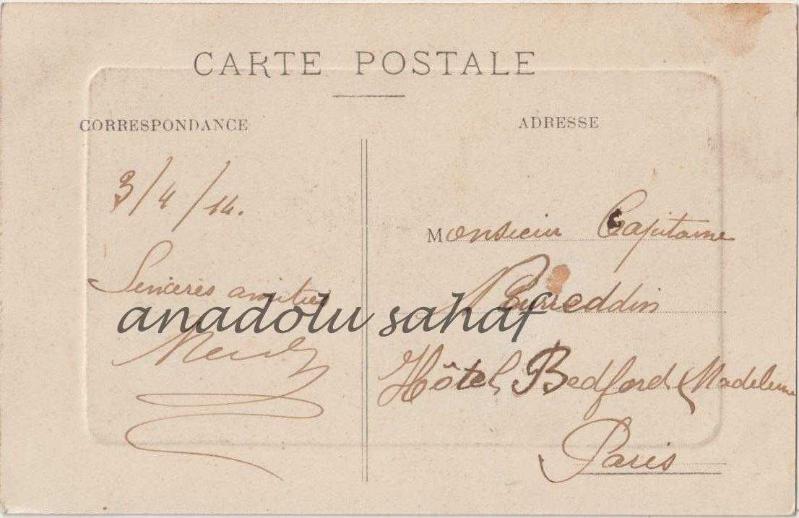 CARTE POSTALE
CORRESPONDANCE
3/4/14.
Sincères amitiés
anadolu sahaf
ADRESSE
Monsieur Capitaine
Noureddin
Hôtel Bedford Madeleine
Paris